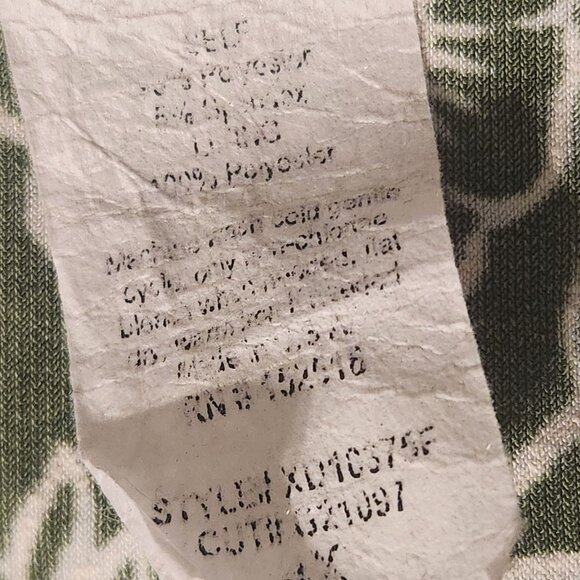 SELF
Polyester
5% Spandex
LINING
100% Polyester
Machine wash cold gentle
cycle, only non-chlorine
bleach when needed, flat
dry, warm iron if needed
Made in
RN # 152516
STYLE# XD10374F
CUT# GZ1097